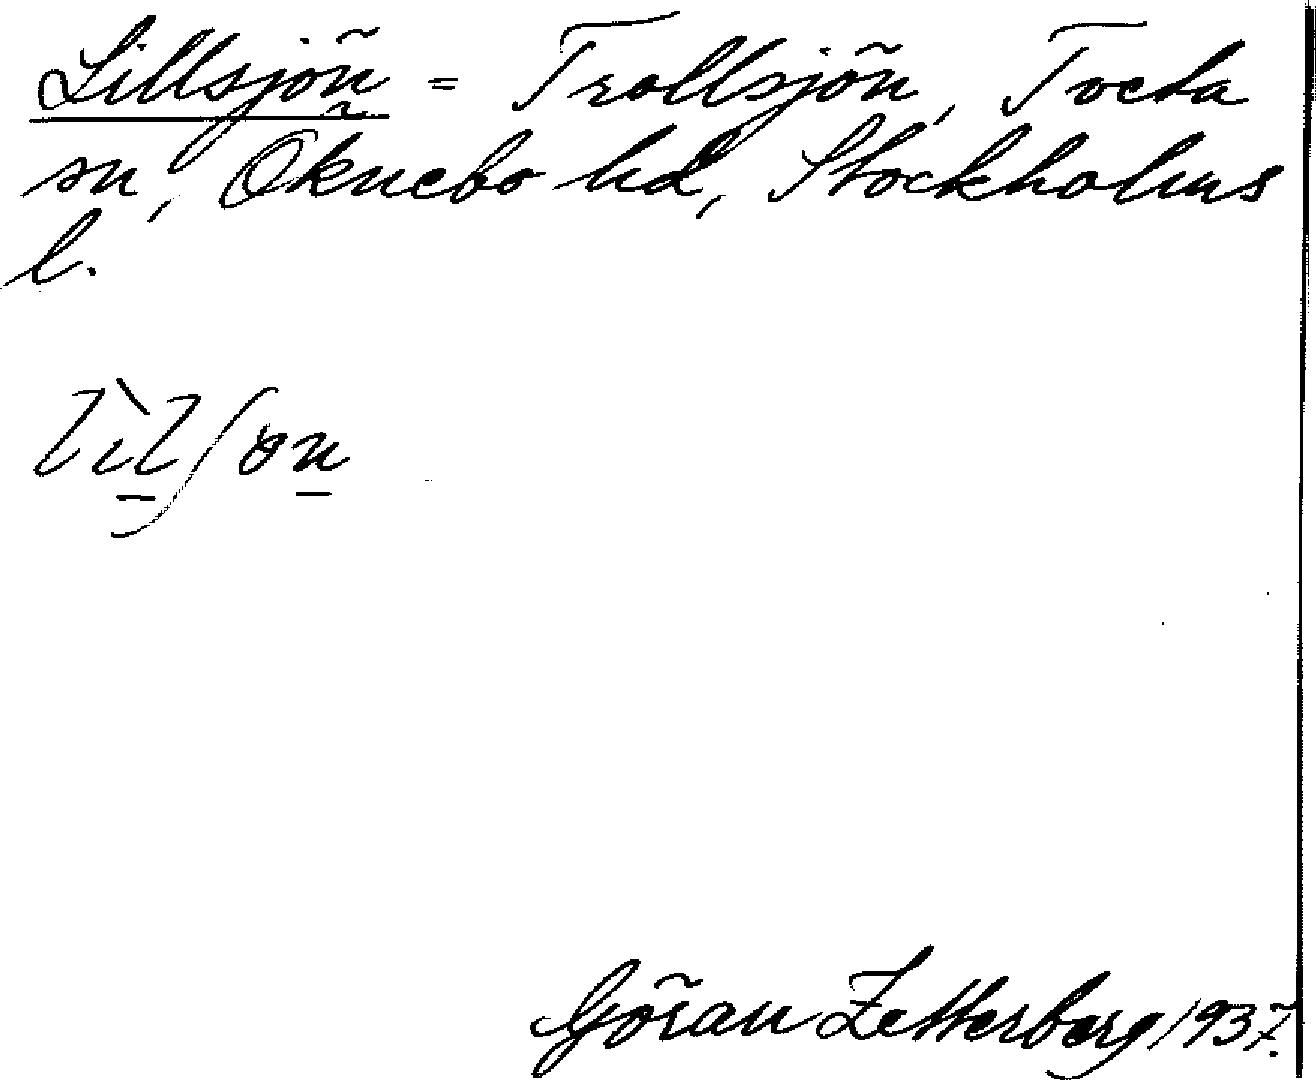 Lillsjön = Trollsjön, Tveta
sn, Öknebo hd, Stockholms
l.
lìlʃøn
Göran Zetterberg 1937.